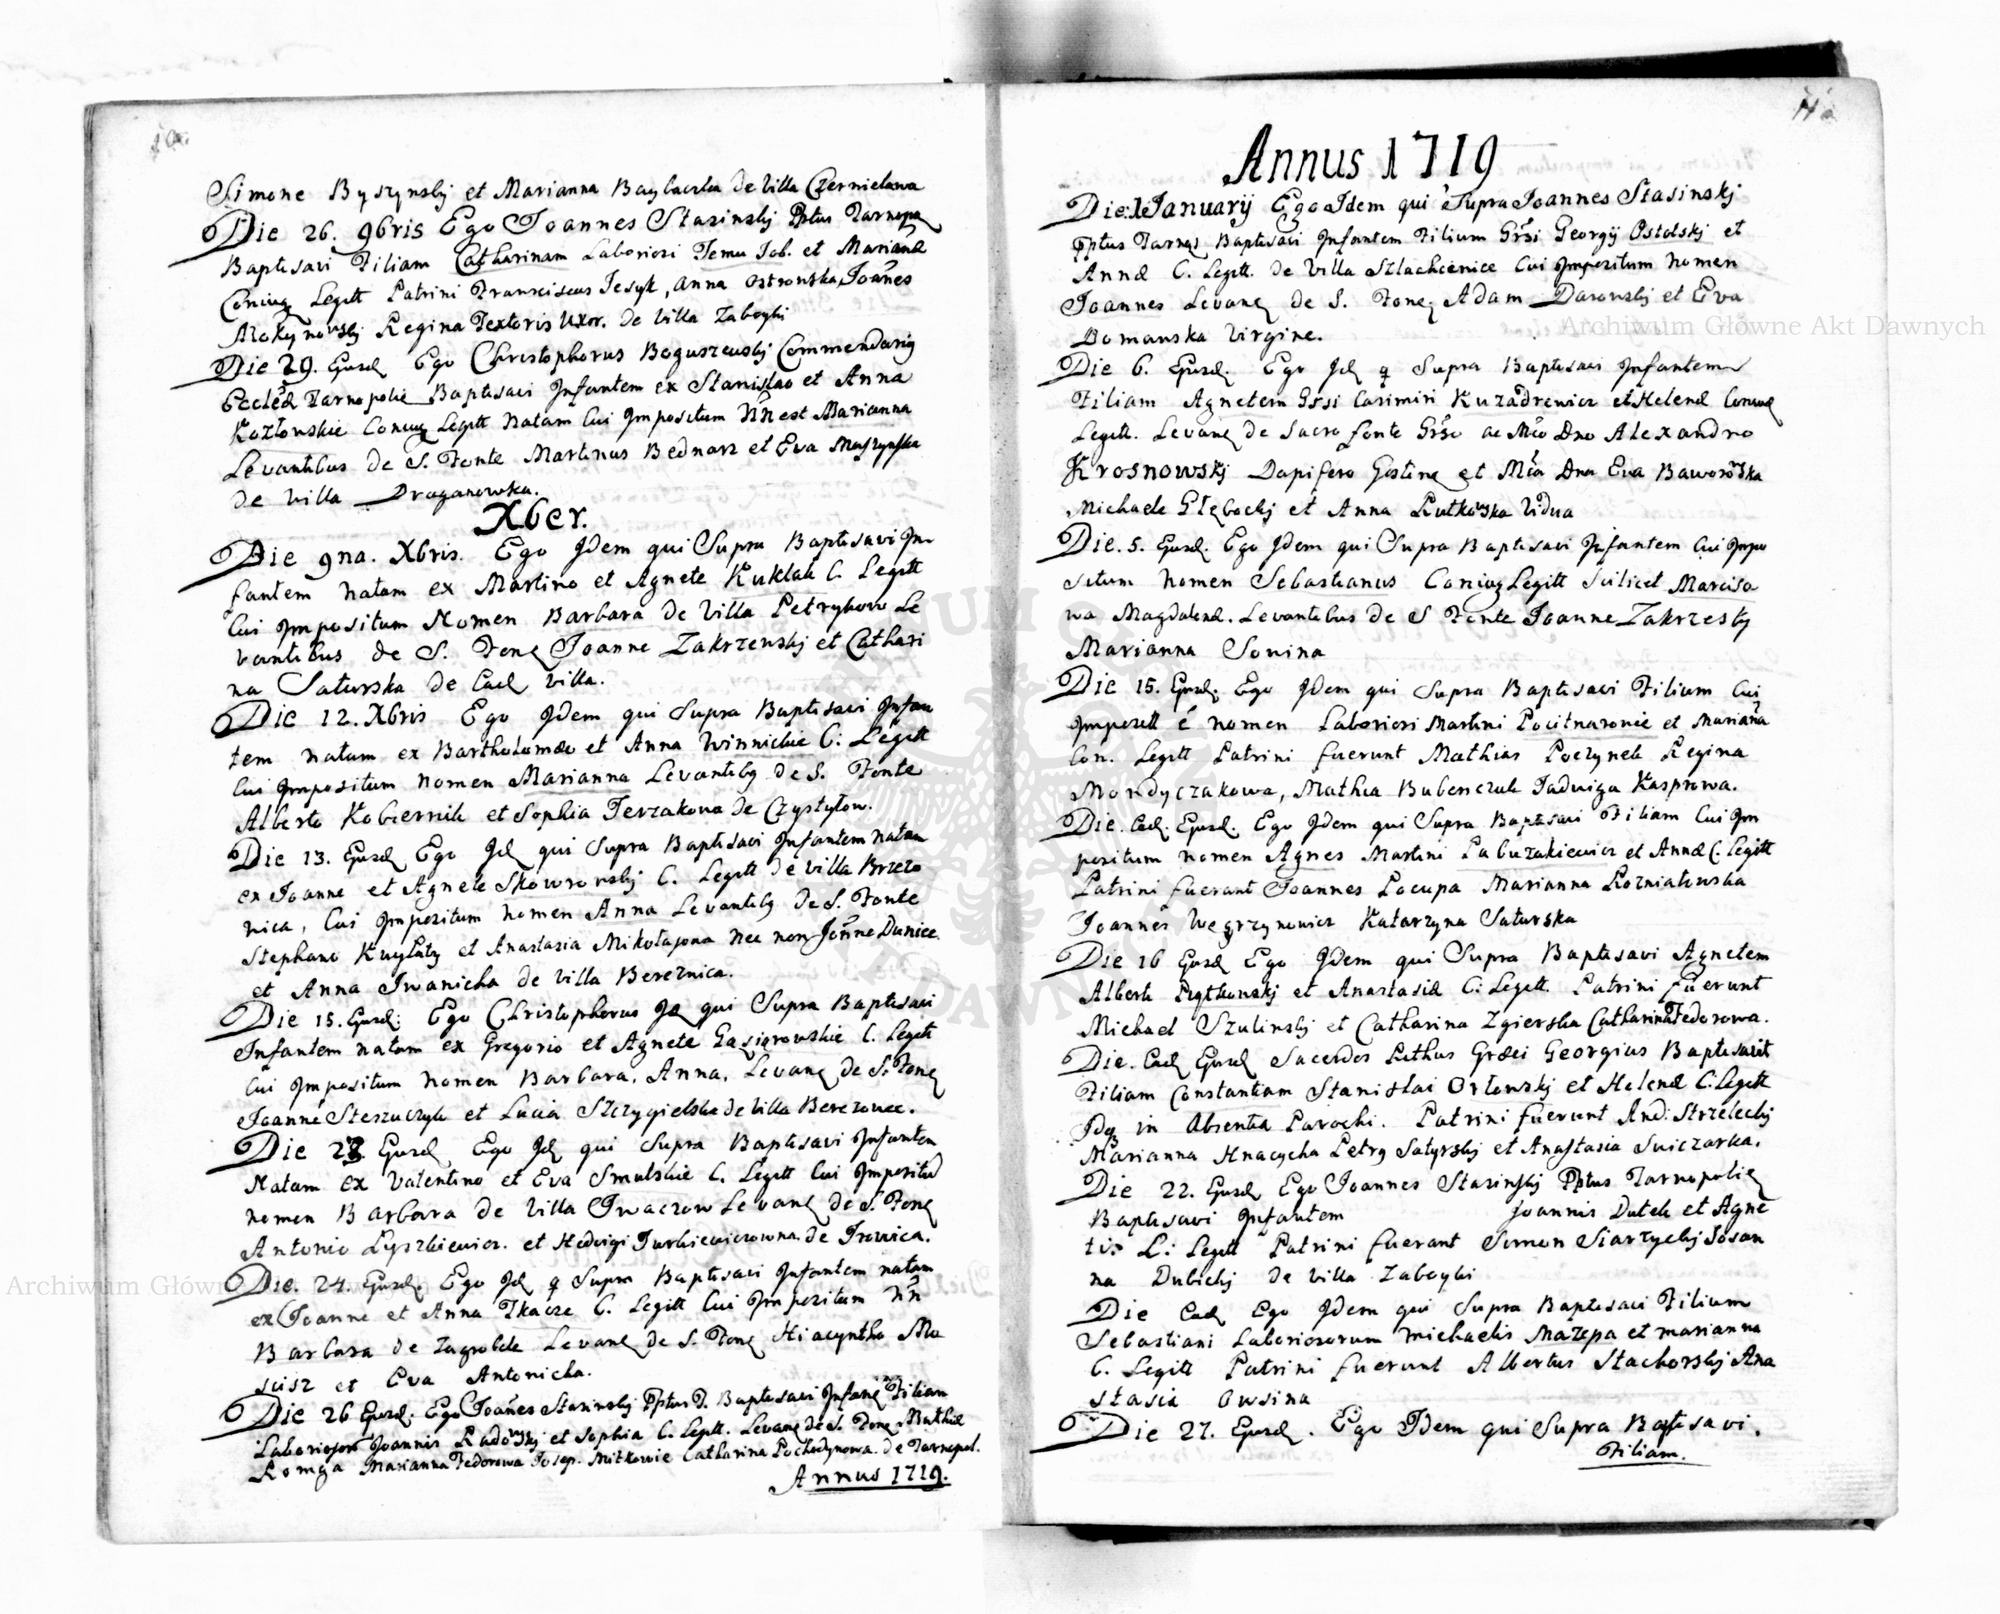 Simone Byszynskj et Marianna Baybaczka de Villa Czernielawa
Die 26. 9bris Ego Joannes Stasinskj Pptus Tarnopo
Baptisavi Filiam Catharinam Laboriosi Temu Job. et Mariana
Coniug Legitt Patrini Franciscus Jesyk, Anna Ostrowska Joañes
Mokrynowskj Regina Textoris Uxor. de Villa Zaboyki
Die 29. Eiusd. Ego Christophorus Boguszewskj Commendariq
Eccleæ Tarnopolie Baptisavi Infantem ex Stanislao et Anna
Kozłowskie Coniug Legitt Natam Cui Impositum Nn̄ est Marianna
Levantibus de S. Fonte Martinus Bednarz et Eva Muszynska
de Villa Draganowka.
Xber.
Die 9na. Xbris. Ego Idem qui Supra Baptisavi In-
fantem Natam ex Martino et Agnete Kuklak C. Legitt
Cui Impositum Nomen Barbara de Villa Petrykow Le
vantibus de S. Fone Joanne Zakrzewskj et Cathari
na Saturska de Ead Villa.
Die 12. Xbris Ego Idem qui Supra Baptisavi Infan
tem Natam ex Bartholomæo et Anna Winnickie C: Legitt
Cui Impositum Nomen Marianna Levantibq de S. Fonte
Alberto Kobiernik et Sophia Jerzakowa de Czystyłow.
Die 13. Eiusd Ego Id qui Supra Baptisavi Infantem natam
ex Joanne et Agnete Skowronskj C. Legitt de Villa Brzezo
nica, Cui Impositum Nomen Anna Levantibq de S. Fonte
Stephano Kuylaty et Anastasia Mikołajowa nec non Joñne Dunice
et Anna Iwanicha de Villa Bereznica.
Die 15. Eiusd: Ego Christophorus Id qui Supra Baptisavi
Infantem natam ex Gregorio et Agnete Gasiorowskie C. Legitt
Cui Impositum Nomen Barbara, Anna, Levang de S. Fong
Joanne Steszuczyk et Lucia Szczygielska de Villa Berezowce.
Die 23 Eiusd Ego Id qui Supra Baptisavi Infantem
Natam ex Valentino et Eva Smulskie C. Legitt Cui Impositū
nomen Barbara de Villa Iwaczow Levang de S. Fong
Antonio Lyszkiewicz. et Hedvigi Jurkiewiczowna. de Irowica.
Die. 24. Eiusd. Ego Id q Supra Baptisavi Infantem natam
ex Joanne et Anna Tkacze C. Legitt Cui Impositum Nn̄
Barbara de Zagrobele Levang de S. Fong Hiacyntho Mu
scisz et Eva Antonicha.
Die 26 Eiusd. Ego Joañes Stasinskj Pptus T. Baptisavi Infang Filiam
Laboriosor Joannis Radowskj et Sophia C. Legitt. Levang de S. Fong Mathia
Romga Marianna Fedorowa Josep. Mitkowie Catharina Pochodynowa. de Tarnopol.
Annus 1719.
Annus 1719
Die: 1 Januarij Ego Idem qui Supra Joannes Stasinskj
Pptus Tarnop Baptisavi Infantem Filium Gr̃si Georgij Ostolskj et
Annæ C. Legitt. de Villa Szlachcenice Cui Impositum Nomen
Joannes Levang de S. Fong. Adam Darowskj et Eva
Domanska Virgine.
Die 6. Eiusd. Ego Id q Supra Baptisavi Infantem
Filiam Agnetem Gr̃si Casimiri Kuzadrewicz et Helenæ Coniug
Legitt. Levang de Sacro fonte Gr̃so ac Mco Dno Alexandro
Krosnowskj Dapifero Gostine et Mca Dna Eva Baworowska
Michaele Głębockj et Anna Rutkowska Vidua
Die. 5. Eiusd. Ego Idem qui Supra Baptisavi Infantem Cui Impo
situm Nomen Sebastianus Coniug Legitt scilicet Marciso
wa Magdalenæ. Levantibus de S Fonte Joanne Zakrzeskj
Marianna Sowina
Die 15. Eiusd. Ego Idem qui Supra Baptisavi Filium Cui
Impositt ē nomen Laboriosi Martini Pocitnaronie et Mariana
Con. Legitt Patrini fuerunt Mathias Poczynek Regina
Mondyczakowa, Mathia Bubenczuk Jadwiga Kasprowa.
Die. Ead. Eiusd. Ego Idem qui Supra Baptisavi Filiam Cui Im
positum nomen Agnes Martini Pabuzakiewicz et Annæ C. Legitt
Patrini fuerant Joannes Pocupa Marianna Pozniakowska
Joannes Węgrzynowicz Katarzyna Saturska
Die 16 Eiusd Ego Idem qui Supra Baptisavi Agnetem
Alberti Piątkowskj et Anastasiæ C: Legitt. Patrini fuerunt
Michael Szulinskj et Catharina Zgierska Catharina Fedorowa.
Die. Ead Eiusd Sacerdos Rithus Græci Georgius Baptisavit
Filiam Constantiam Stanislai Orłowskj et Helenæ C. Legitt
Idq in Absentia Parochi. Patrini fuerunt And: Strzeleckj
Marianna Hnacycha Petrq Satyrskj et Anastasia Swiczarka.
Die 22. Eiusd Ego Joannes Stasinskj Pptus Tarnopolie
Baptisavi Infantem Joannis Dutck et Agne
tis C: Legitt Patrini fuerant Simon Siarzyckj Sosan
na Dubickj de Villa Zaboyki
Die Ead Ego Idem qui Supra Baptisavi Filium
Sebastiani Laboriosorum Michaelis Mazepa et Marianna
C. Legitt Patrini fuerunt Albertus Stachorskj Ana
stasia Owsina
Die 27. Eiusd. Ego Idem qui Supra Baptisavi.
Filiam.
Archiwum Główne Akt Dawnych